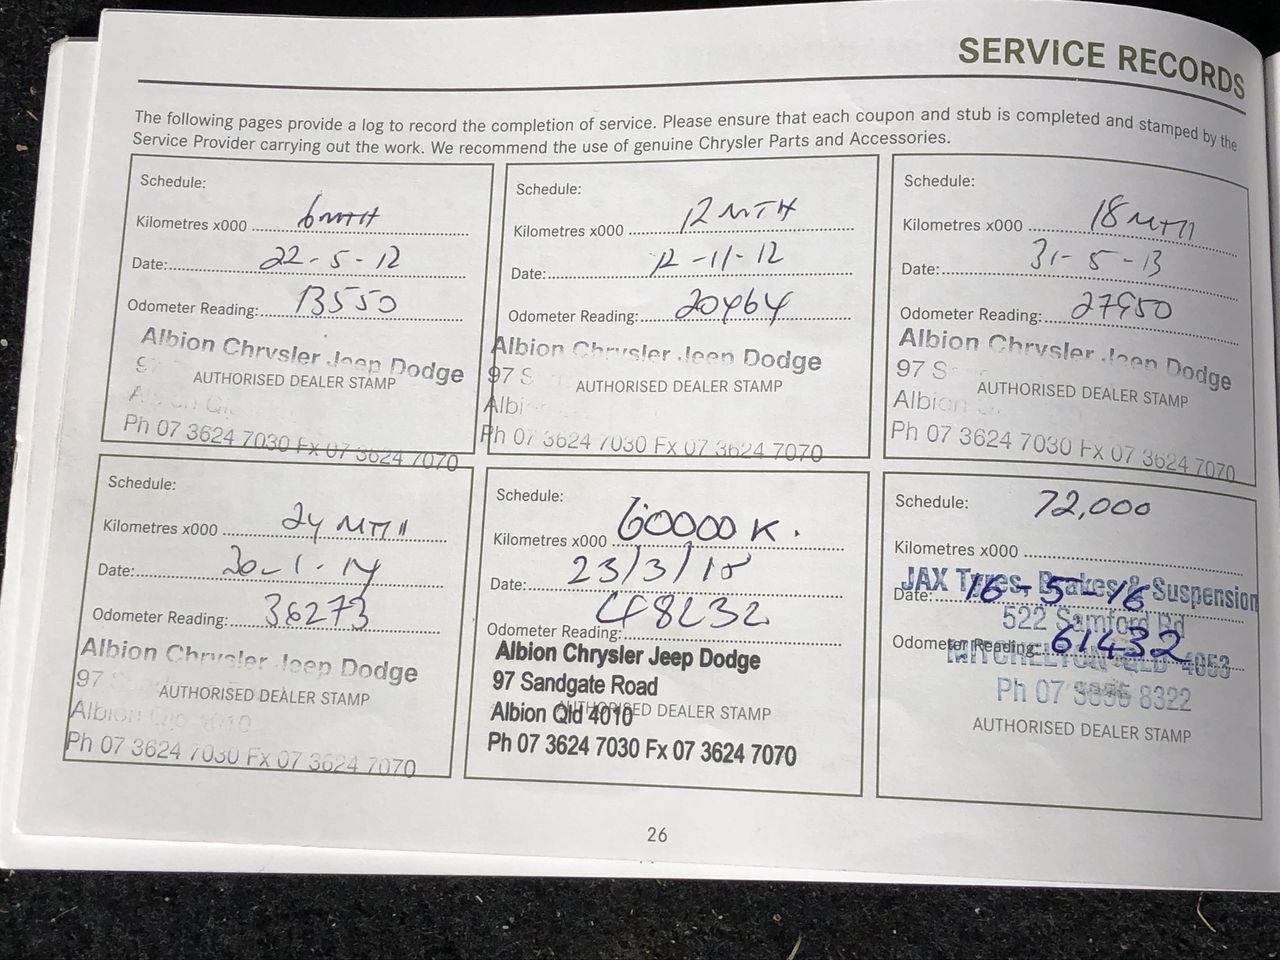 SERVICE RECORDS
The following pages provide a log to record the completion of service. Please ensure that each coupon and stub is completed and stamped by the
Service Provider carrying out the work. We recommend the use of genuine Chrysler Parts and Accessories.
Schedule:
Kilometres x000 6 MTH
Date: 22-5-12
Odometer Reading: 13550
Albion Chrysler Jeep Dodge
97
AUTHORISED DEALER STAMP
Ph 07 3624 7030 Fx 07 3624 7070
Schedule:
Kilometres x000 12 MTH
Date: 12-11-12
Odometer Reading: 20464
Albion Chrysler Jeep Dodge
97 S
AUTHORISED DEALER STAMP
Albi
Ph 07 3624 7030 Fx 07 3624 7070
Schedule:
Kilometres x000 18 MTH
Date: 31-5-13
Odometer Reading: 27950
Albion Chrysler Jeep Dodge
97 S
AUTHORISED DEALER STAMP
Albion
Ph 07 3624 7030 Fx 07 3624 7070
Schedule:
Kilometres x000 24 MTH
Date: 20-1-14
Odometer Reading: 36273
Albion Chrysler Jeep Dodge
97
AUTHORISED DEALER STAMP
Albion Qld 4010
Ph 07 3624 7030 Fx 07 3624 7070
Schedule:
Kilometres x000 60000 K.
Date: 23/3/15
Odometer Reading: 48232
Albion Chrysler Jeep Dodge
97 Sandgate Road
Albion Qld 4010
AUTHORISED DEALER STAMP
Ph 07 3624 7030 Fx 07 3624 7070
Schedule: 72,000
Kilometres x000
JAX Tyres, Brakes & Suspension
Date: 16-5-16
522 Samford Rd
Odometer Reading: 61432
MITCHELTON QLD 4053
Ph 07 3356 8322
AUTHORISED DEALER STAMP
26